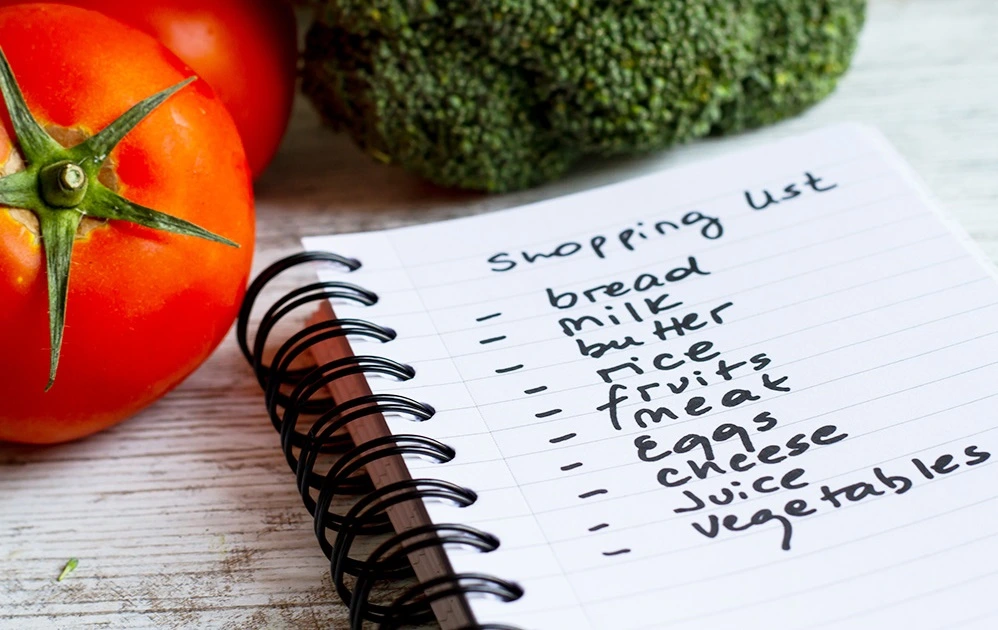 Shopping List
- bread
- milk
- butter
- rice
- fruits
- meat
- Eggs
- cheese
- Juice
- vegetables